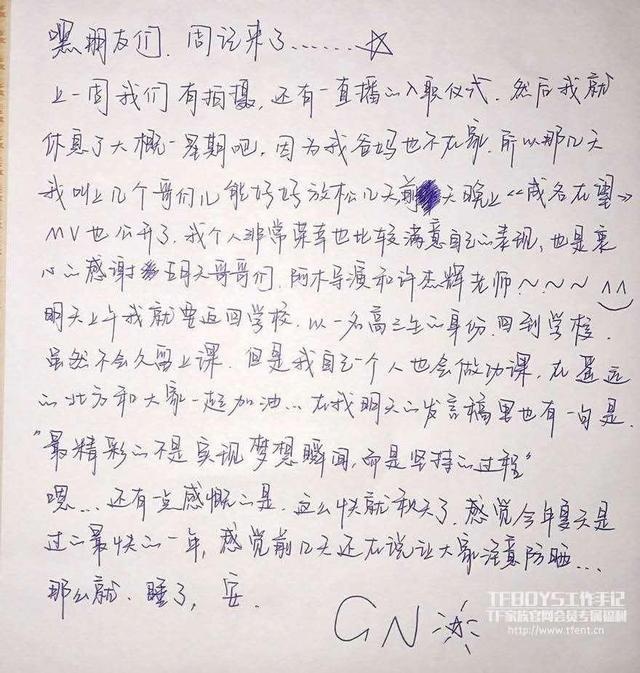 嘿朋友们.周记来了......☆
上一周我们有拍摄,还有一直播的入职仪式.然后我就
休息了大概一星期吧,因为我爸妈也不在家.所以那几天
我叫上几个哥们儿能好好放松几天前天晚上《成名在望》
MV也公开了.我个人非常荣幸也比较满意自己的表现,也是衷
心的感谢五月天哥哥们.阿木导演和许杰辉老师~~~^^
明天上午我就要返回学校.以一名高三生的身份.回到学校.
虽然不会久留上课.但是我自己一个人也会做功课.在遥远
的北方和大家一起加油...在我明天的发言稿里也有一句是.
"最精彩的不是实现梦想瞬间,而是坚持的过程"
嗯...还有一点感慨的是.这么快就秋天了.感觉今年夏天是
过的最快的一年,感觉前几天还在说让大家注意防晒...
那么就.睡了,安.
GN
TFBOYS工作手记
TF家族官网会员专属福利
http://www.tfent.cn